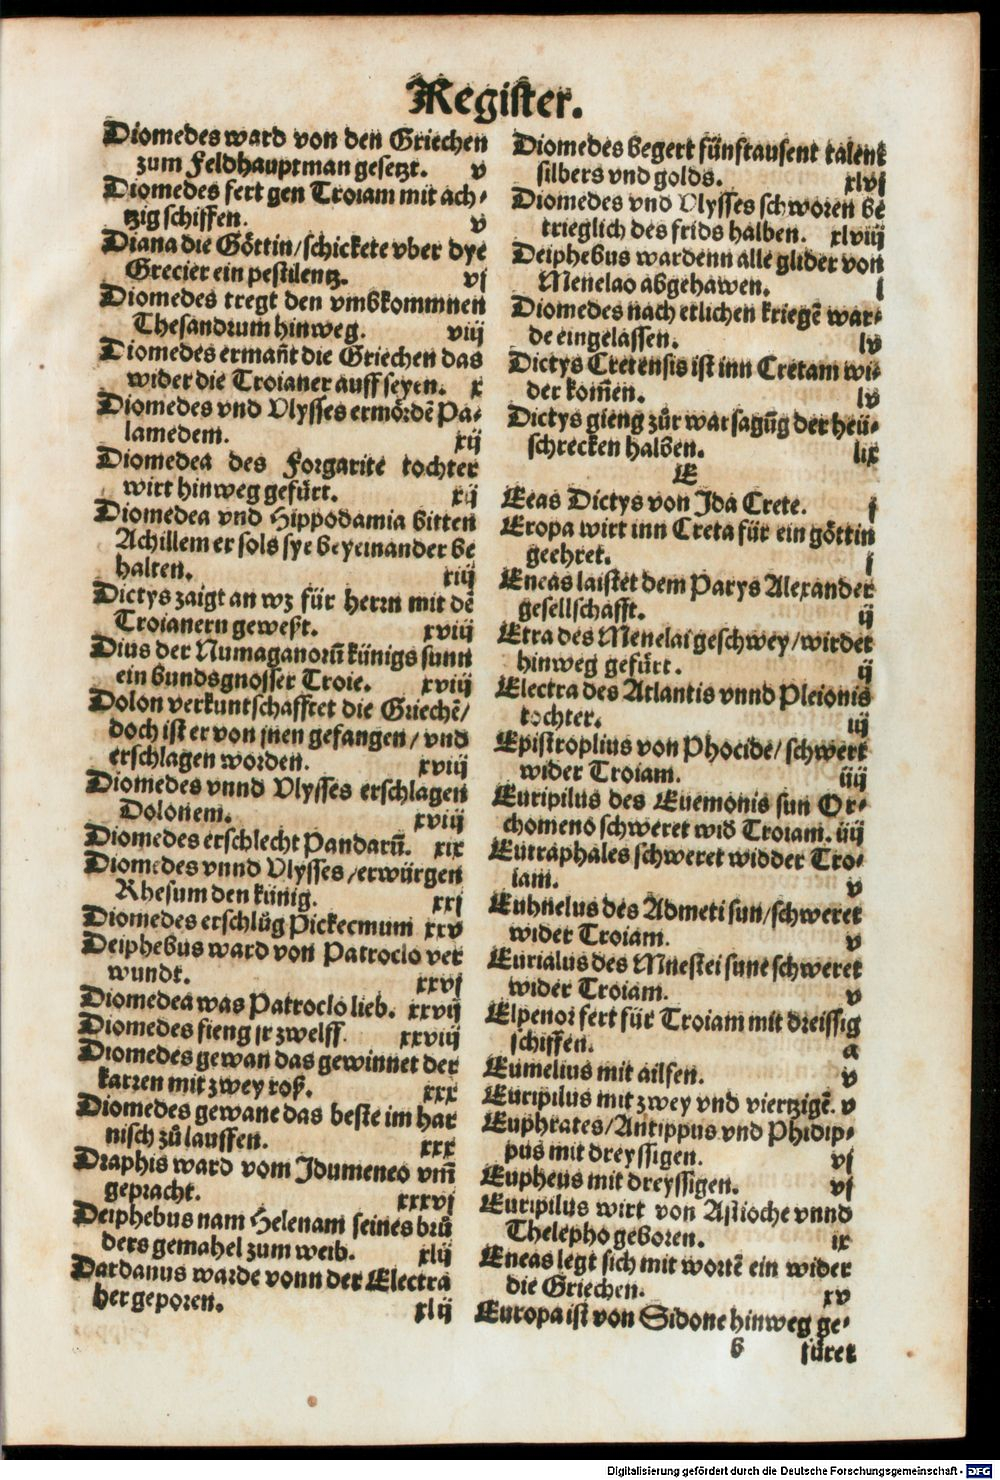 Register.
Diomedes ward von den Griechen
zum Feldhauptman gesetzt. v
Diomedes fert gen Troiam mit ach⸗
tzig schiffen. v
Diana die Göttin/schickete vber dye
Grecier ein pestilentz. vj
Diomedes tregt den vmbkommnen
Thesandrum hinweg. viij
Diomedes ermañt die Griechen das
wider die Troianer auff seyen. x
Diomedes vnd Vlysses ermördē Pa⸗
lamedem. xij
Diomedea des Forgarite tochter
wirt hinweg gefürt. xij
Diomedea vnd Hippodamia bitten
Achillem er sols sye beyeinander be
halten. xiij
Dictys zaigt an wz für herrn mit dē
Troianern geweßt. xviij
Dius der Numaganorū künigs sunn
ein bundsgnosser Troie. xviij
Dolon verkuntschafftet die Griechē/
doch ist er von jnen gefangen/vnd
erschlagen worden. xviij
Diomedes vnnd Vlysses erschlagen
Dolonem. xviij
Diomedes erschlecht Pandarū. xix
Diomedes vnnd Vlysses/erwürgen
Rhesum den künig. xxj
Diomedes erschlůg Pickecmum xxv
Deiphebus ward von Patroclo ver
wundt. xxvj
Diomedea was Patroclo lieb. xxvij
Diomedes fieng jr zwelff. xxviij
Diomedes gewan das gewinnet der
karren mit zwey roß. xxx
Diomedes gewane das beste im har
nisch zů lauffen. xxx
Draphis ward vom Idumeneo vm̃
gepracht. xxxvj
Deiphebus nam Helenam seines brů
ders gemahel zum weib. xlij
Dardanus warde vonn der Electra
her geporen. xlij
Diomedes begert fünftausent talent
silbers vnd golds. xlvj
Diomedes vnd Vlysses schworen be
trieglich des frids halben. xlviij
Deiphebus wardenn alle glider von
Menelao abgehawen. l
Diomedes nach etlichen kriegē war⸗
de eingelassen. lv
Dictys Cretensis ist inn Cretam wi⸗
der kom̃en. lv
Dictys gieng zůr warsagūg der heü⸗
schrecken halben. lix
E
Eeas Dictys von Ida Crete. j
Eropa wirt inn Creta für ein göttin
geehret. j
Eneas laistet dem Parys Alexander
gesellschafft. ij
Etra des Menelai geschwey/wirdet
hinweg gefürt. ij
Electra des Atlantis vnnd Pleionis
tochter. iij
Epistroplius von Phocide/schwert
wider Troiam. iiij
Euripilus des Euemonis sun Or⸗
chomeno schweret wid Troiam. iiij
Eutraphales schweret widder Tro⸗
iam. v
Euhnelus des Admeti sun/schweret
wider Troiam. v
Eurialus des Mnestei sune schweret
wider Troiam. v
Elpenor fert für Troiam mit dreissig
schiffen. a
Eumelius mit ailfen. v
Euripilus mit zwey vnd viertzigē. v
Euphrates/Antippus vnd Phidip⸗
pus mit dreyssigen. vj
Eupheus mit dreyssigen. vj
Euripilus wirt von Astioche vnnd
Thelepho geboren. ix
Eneas legt sich mit wortē ein wider
die Griechen. xv
Europa ist von Sidone hinweg ge⸗
b füret
Digitalisierung gefördert durch die Deutsche Forschungsgemeinschaft - DFG